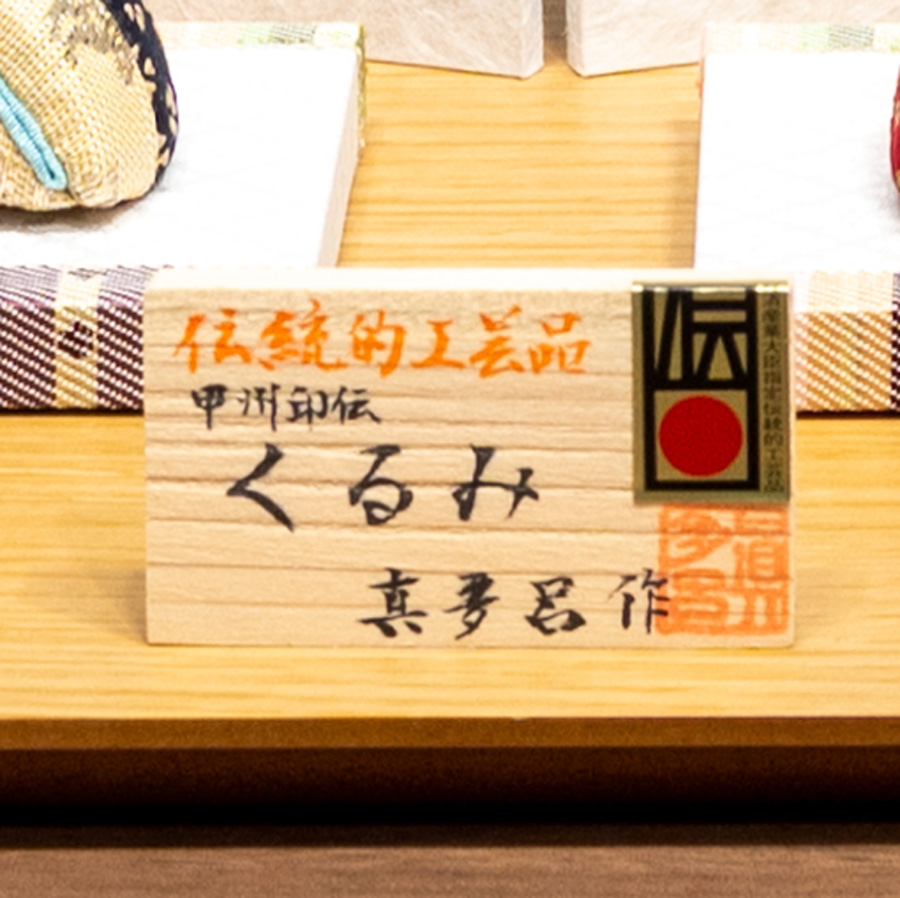 伝統的工芸品
甲州印伝
くるみ
真多呂 作
伝
経済産業大臣指定 伝統的工芸品
真多呂